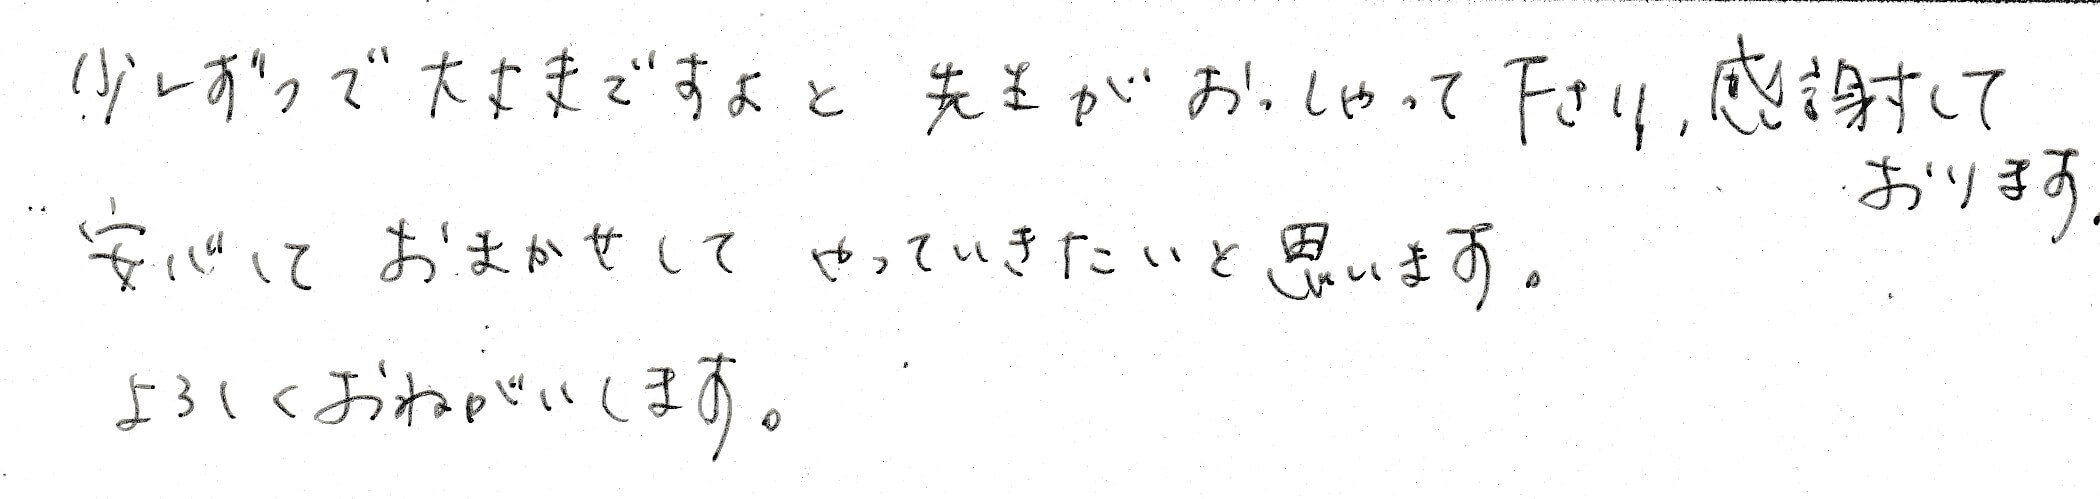 少しずつで大丈夫ですよと 先生がおっしゃって下さり、感謝して
おります。
安心して おまかせして やっていきたいと思います。
よろしくおねがいします。